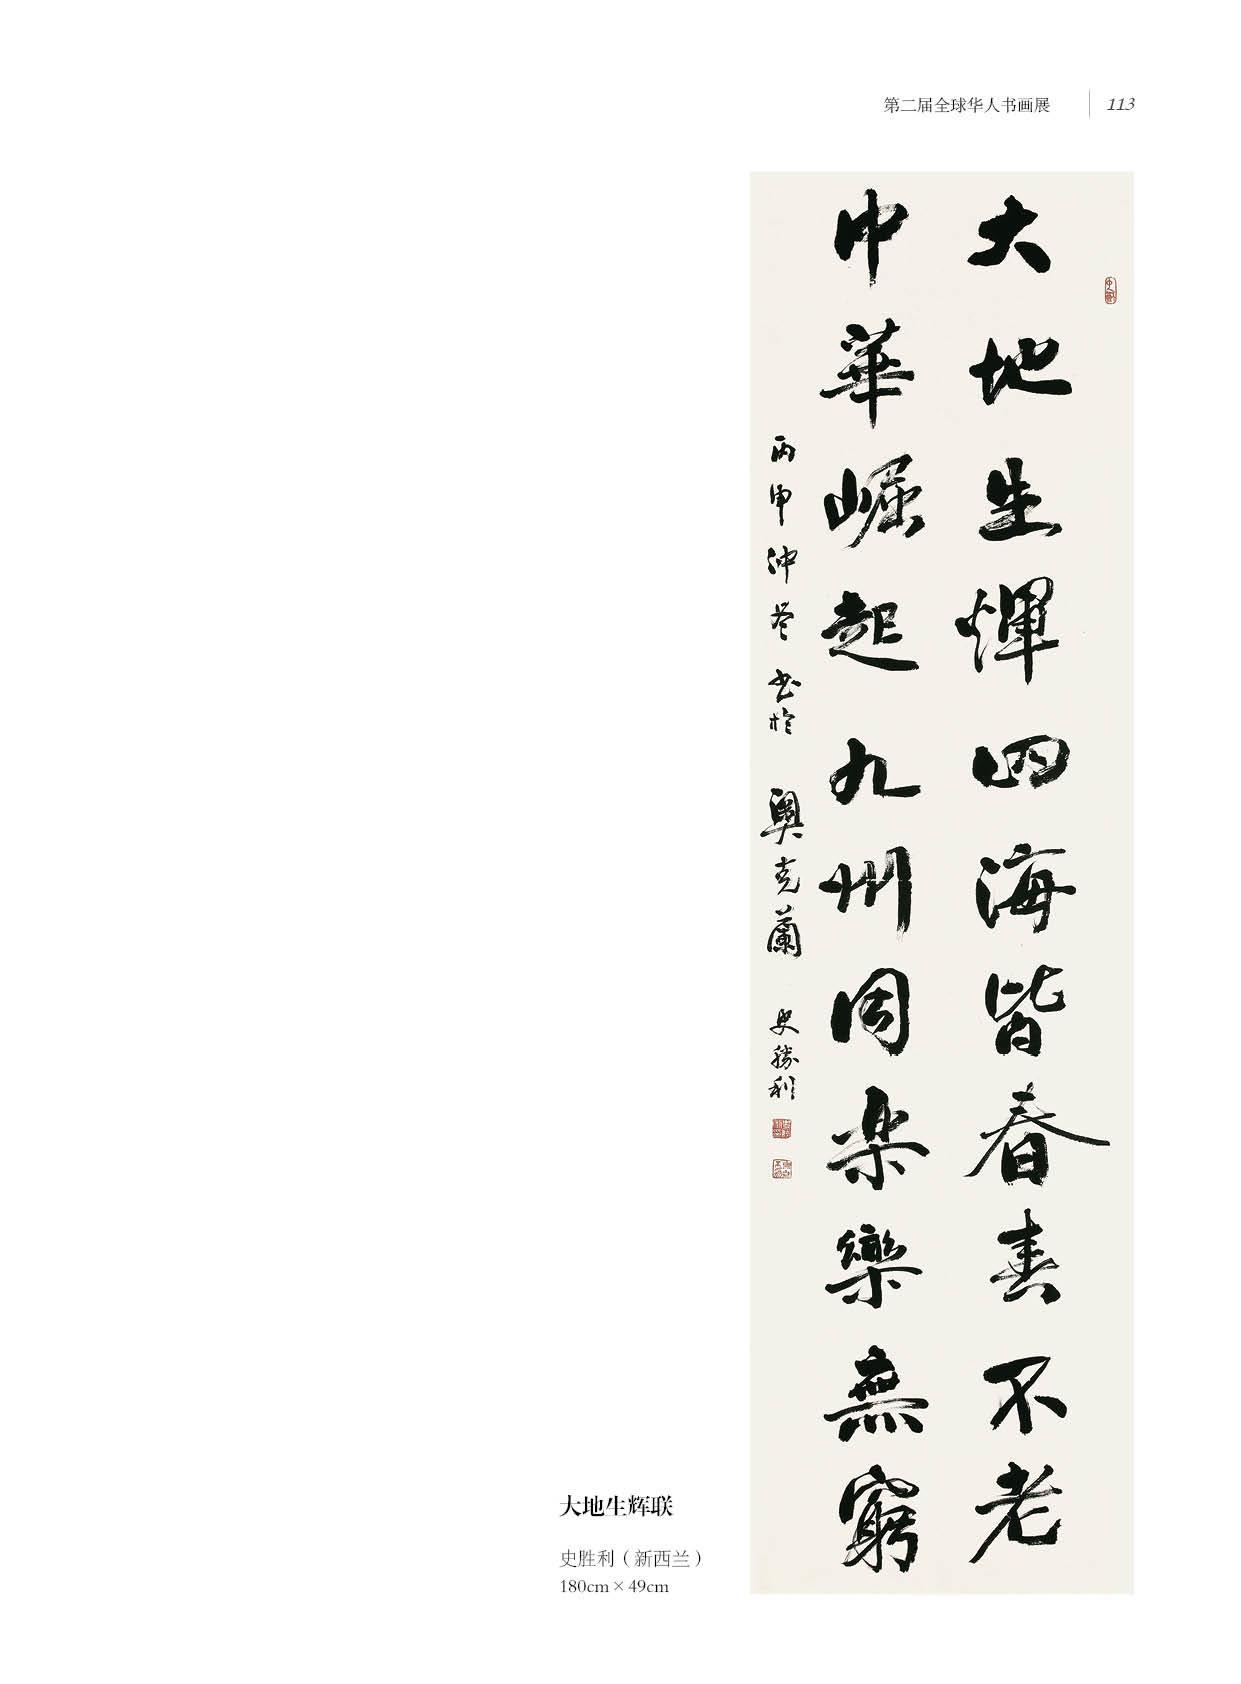 第二届全球华人书画展 113
大地生煇四海皆春春不老
中華崛起九州同楽樂無窮
丙申仲書於 奧克蘭 史勝利
大地生辉联
史胜利（新西兰）
180cm×49cm